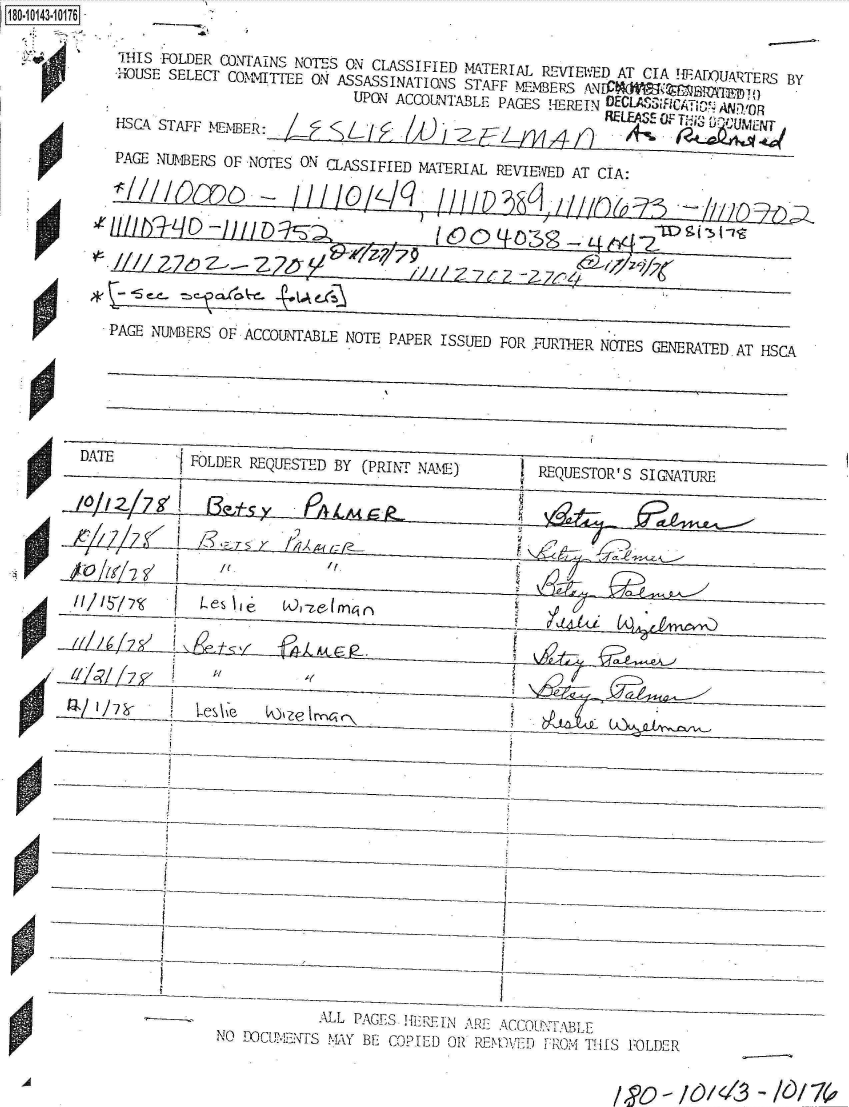 180-10143-10176
THIS FOLDER CONTAINS NOTES ON CLASSIFIED MATERIAL REVIEWED AT CIA HEADQUARTERS BY
HOUSE SELECT COMMITTEE ON ASSASSINATIONS STAFF MEMBERS AND
UPON ACCOUNTABLE PAGES HEREIN
DECLASSIFICATION AND/OR
RELEASE OF THIS DOCUMENT
As Redacted
HSCA STAFF MEMBER: LESLIE WIZELMAN
PAGE NUMBERS OF NOTES ON CLASSIFIED MATERIAL REVIEWED AT CIA:
*11110000 - 11110149, 11110389, 11110673 - 11110702
*11110740 - 11110752 1004038 - 4042 TD 8/3/78
* 11112702 - 2704 11112702-2704
* [- See separate folders]
PAGE NUMBERS OF ACCOUNTABLE NOTE PAPER ISSUED FOR FURTHER NOTES GENERATED AT HSCA
DATE FOLDER REQUESTED BY (PRINT NAME) REQUESTOR'S SIGNATURE
10/12/78 Betsy PALMER Betsy Palmer
10/17/78 BETSY PALMER Betsy Palmer
10/18/78 " " Betsy Palmer
11/15/78 Leslie Wizelman Leslie Wizelman
11/16/78 Betsy PALMER. Betsy Palmer
11/21/78 " " Betsy Palmer
12/1/78 Leslie Wizelman Leslie Wizelman
ALL PAGES HEREIN ARE ACCOUNTABLE
NO DOCUMENTS MAY BE COPIED OR REMOVED FROM THIS FOLDER
180-10143-10176